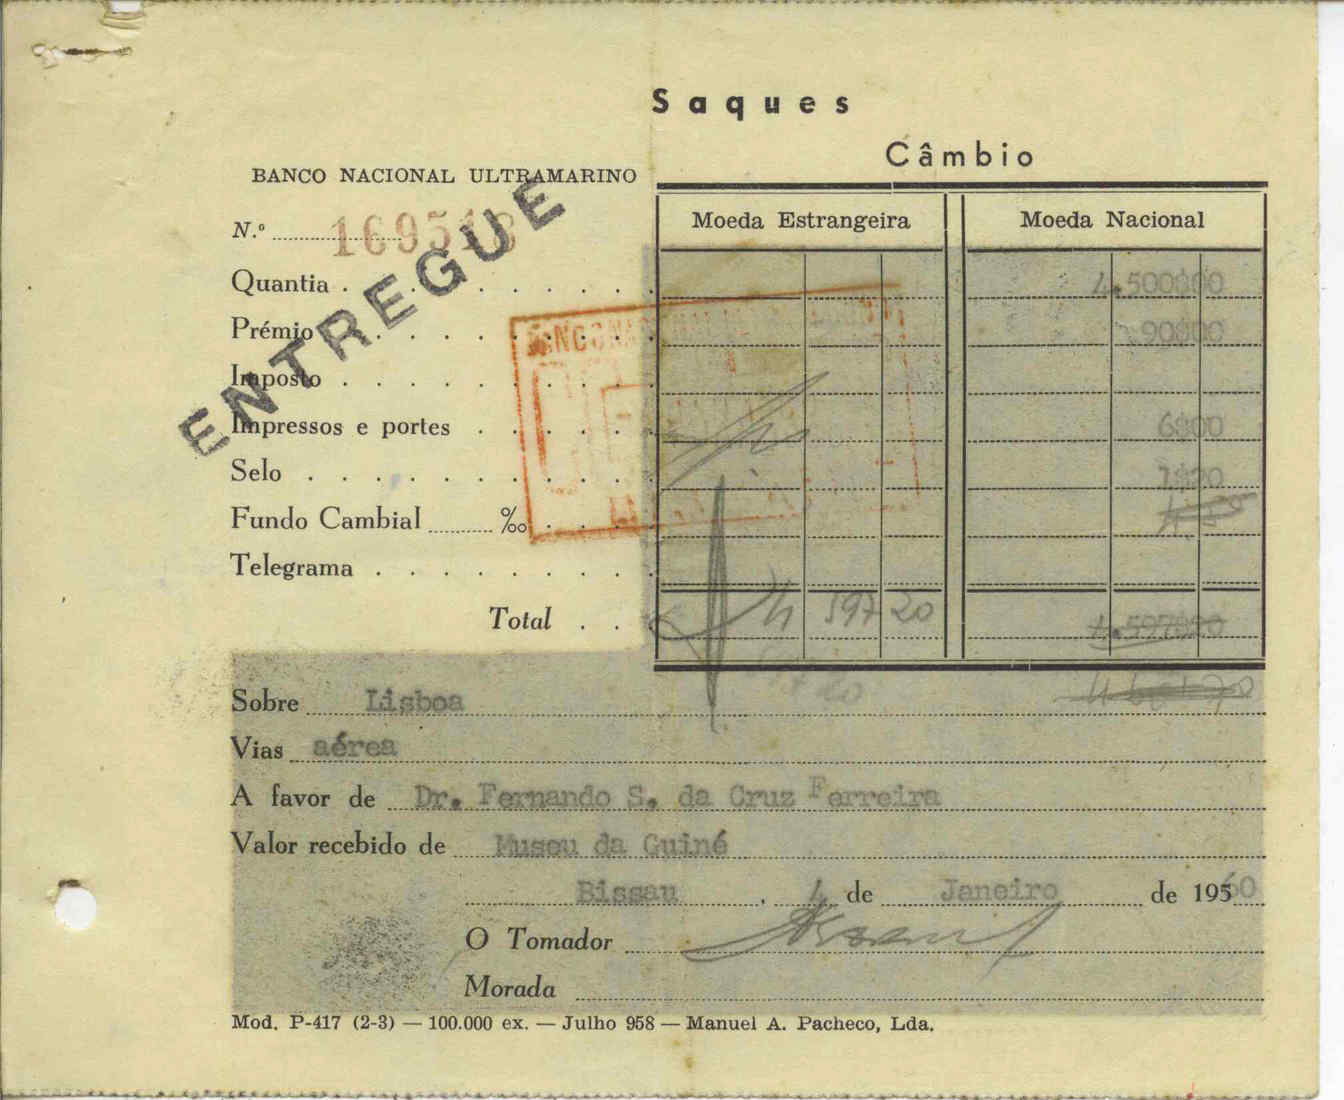 Saques
Câmbio
BANCO NACIONAL ULTRAMARINO
Moeda Estrangeira Moeda Nacional
N.º 169513
ENTREGUE
Quantia 4.500$00
Prémio 90$00
Imposto
Impressos e portes 6$00
Selo 1$20
Fundo Cambial ‰
Telegrama
Total 4 597 20 4.597$20
Sobre Lisboa
Vias aérea
A favor de Dr. Fernando S. da Cruz Ferreira
Valor recebido de Museu da Guiné
Bissau, 4 de Janeiro de 19560
O Tomador
Morada
Mod. P-417 (2-3) — 100.000 ex. — Julho 958 — Manuel A. Pacheco, Lda.